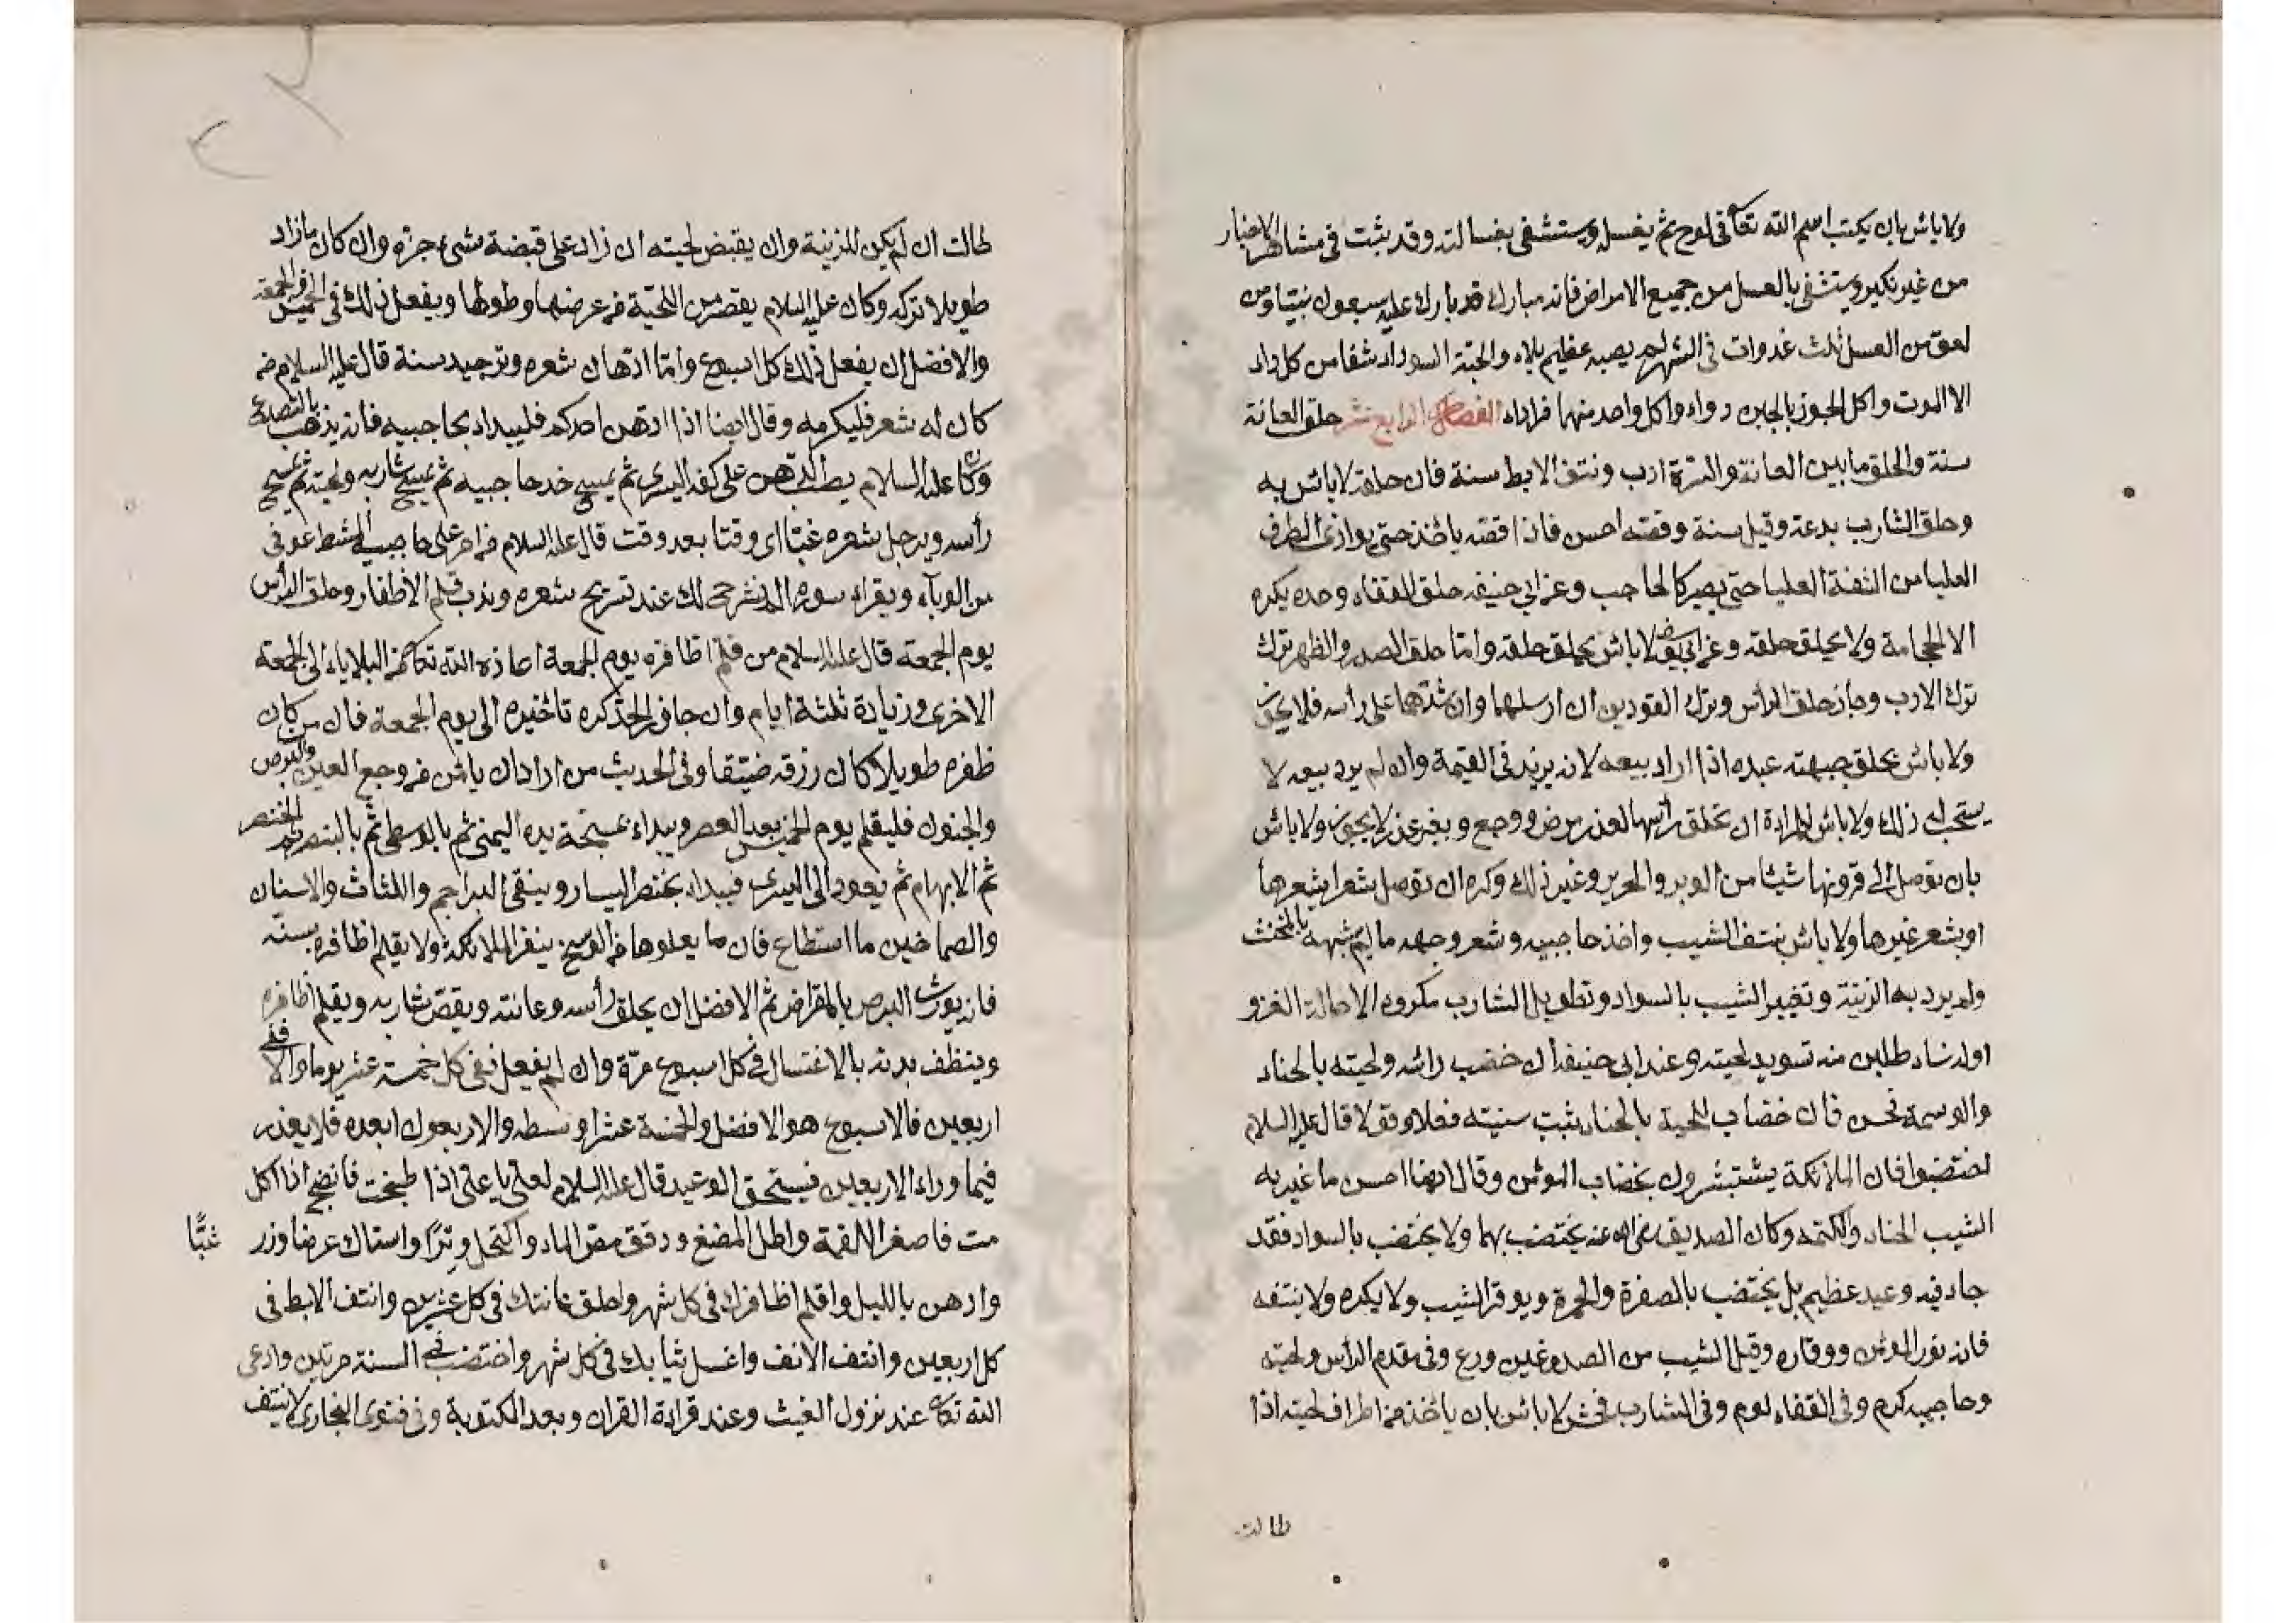 ولا بائس بان يكتب اسم الله تعا فى لوح ثم يغسله ويستشفى بغسالته وقد يثبت فى مشاهر الاخبار
من غير نكير ويستشفى بالعسل من جميع الامراض فانه مبارك قد بارك عليه سبعون نبيا ومن
لعق من العسل ثلث غدوات فى الشهر لم يصبه عظيم بلاء والحبة السوداء شفا من كل داء
الا الموت واكل الجوز بالجبن دواء واكل واحد منهما فرادا داء الفصل الرابع عشر حلق العانة
سنة والحلق ما بين العانة والسرة ادب ونتف الابط سنة فان حلقه لا بائس به
وحلق الشارب بدعة وقيل سنة وقصه احسن فاذا قصه يأخذ حتى يوازى الطرف
العليا من الشفة العليا حتى يصير كالحاجب وعن ابى حنيفه حلق القفاء وحده يكره
الا الحجامة ولا يحلق حلقه وعن ابى يوسف لا بائس بحلق حلقه واما حلق الصدر والظهر ترك
ترك الادب وجاز حلق الرأس وترك القودين ان ارسلهما وان شدهما على رأسه فلا يجوز
ولا بائس بحلق جبهته عبده اذا اراد بيعه لانه يزيد فى القيمة وان لم يرد بيعه لا
يستحب له ذلك ولا بائس للمراءة ان تحلق رأسها لعذر مرض ووجع وبغير عذر لا يجوز ولا بائس
بان توصل الى قرونها شيئا من الوبر والحرير وغير ذلك وكره ان توصل شعرا بشعرها
او بشعر غيرها ولا بائس بنتف الشيب واخذ حاجبيه وشعر وجهه ما لم يشبه بالمخنث
ولم يرد به الزينة وتغيير الشيب بالسواد وتطويل الشارب مكروه الا حالة الغزو
او لنساء طلبن منه تسويد لحيته وعند ابى حنيفه ان خضب رائسه ولحيته بالحناء
والوسمة فحسن فان خضاب اللحية بالحناء يثبت سنيته فعلا وقولا قال عليه السلام
اختضبوا فان الملائكة يستبشرون بخضاب المؤمن وقال ايضا احسن ما غير به
الشيب الحناء والكتم وكان الصديق رضى الله عنه يختضب بهما ولا يختضب بالسواد فقد
جاء فيه وعيد عظيم بل يختضب بالصفرة والحمرة ويوقر الشيب ولا يكره ولا ينتفه
فانه نور المؤمن ووقاره وقيل الشيب من الصدوغين ورع وفى مقدم الرأس ولحيته
وحاجبيه كرم وفى القفاء لوم وفى الشارب فحش لا بائس بان يأخذ من اطراف لحيته اذا
طالت
طالت ان لم يكن للزينة وان يقبض لحيته ان زاد على قبضة شىء جزه وان كان ما زاد
طويلا تركه وكان عليه السلام يقصر من اللحية من عرضها وطولها ويفعل ذلك فى الخميس او الجمعة
والافضل ان يفعل ذلك كل اسبوع واما ادهان شعره وترجيله سنة قال عليه السلام من
كان له شعر فليكرمه وقال ايضا اذا ادهن احدكم فليبداء بحاجبيه فانه يذهب بالتصدع
وكان عليه السلام يصب الدهن على كفه اليسرى ثم يمسح خد حاجبيه ثم يمسح شاربه ولحيته ثم يمسح
رأسه ويرجل شعره غبا اى وقتا بعد وقت قال عليه السلام من امر على حاجبيه المشط عوفى
من الوباء ويقراء سورة الم نشرح لك عند تسريح شعره وندب قلم الأظفار وحلق الرأس
يوم الجمعة قال عليه السلام من قلم اظافره يوم الجمعة اعاذه الله تعا من البلاياء الى الجمعة
الاخرى وزيادة ثلثة ايام وان جاف الحد كره تأخيره الى يوم الجمعة فان من كان
ظفره طويلا كان رزقه ضيقا وفى الحديث من اراد ان يأمن من وجع العين والبرص
والجنون فليقلم يوم الخميس بعد العصر ويبداء بمسبحة يده اليمنى ثم بالوسطى ثم بالبنصر ثم الخنصر
ثم الابهام ثم يعود الى اليسرى فيبداء بخنصر اليسار وينقى البراجم واللثاث والاسنان
والصماخين ما استطاع فان ما يعلوها من الوسخ ينفر الملائكة ولا يقلم اظافره بسنه
فانه يورث البرص بالمقراض ثم الافضل ان يحلق رأسه وعانته ويقص شاربه ويقلم اظافره
وينظف بدنه بالاغتسال فى كل اسبوع مرة وان لم يفعل ففى كل خمسة عشر يوما والا ففى
اربعين فالاسبوع هو الافضل والخمسة عشر اوسطه والاربعون ابعده فلا يعذر
فيما وراء الاربعين فيستحق الوعيد قال عليه السلام لعلى يا على اذا طبخت فانضج اذا اكل
مت فاصغر اللقمة واطل المضغ ودقق مص الماء واكتحل وترا واستاك عرضا وزر غبا
وادهن بالليل واقلم اظافرك فى كل شهر واحلق عانتك فى كل عشرين وانتف الابط فى
كل اربعين وانتف الانف واغسل ثيابك فى كل شهر واختضب فى السنة مرتين وادعى
الله تعا عند نزول الغيث وعند قراءة القران وبعد المكتوبة وفى فتوى البخارى لا ينتف